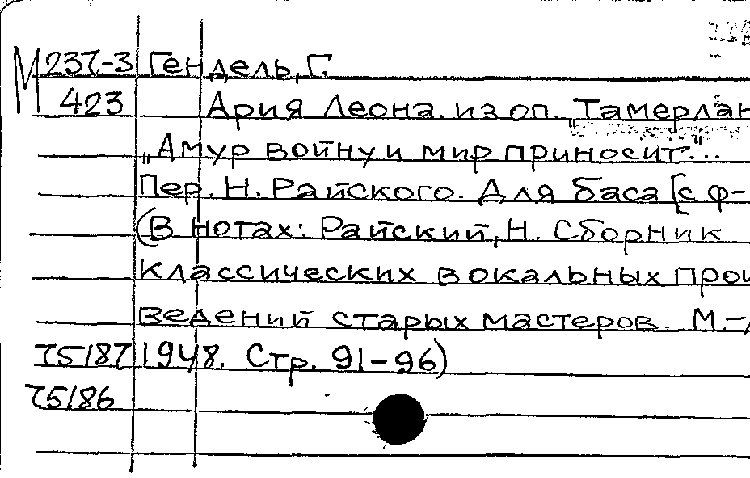 М 237-3 Гендель, Г.
423 Ария Леона из оп. „Тамерлан
„Амур войну и мир приносит"...
Пер. Н. Райского. Для баса [с ф-
(В нотах: Райский, Н. Сборник
классических вокальных прои
ведений старых мастеров. М.-
75187 1948. Стр. 91-96)
75186